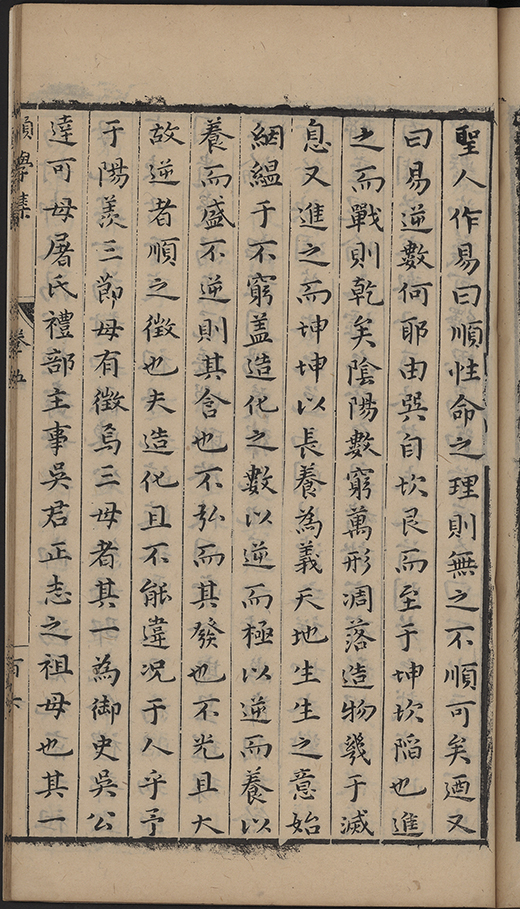 聖人作易曰順性命之理則無之不順可矣迺又
曰易逆數何耶由巽自坎艮而至于坤坎陷也進
之而戰則乾矣陰陽數窮萬形凋落造物幾于滅
息又進之而坤坤以長養為義天地生生之意始
絪縕于不窮盖造化之數以逆而極以逆而養以
養而盛不逆則其含也不弘而其發也不光且大
故逆者順之徵也夫造化且不能違况于人乎予
于陽羨三節母有徵焉三母者其一為御史吳公
達可母屠氏禮部主事吳君正志之祖母也其一
學集 卷五 百六